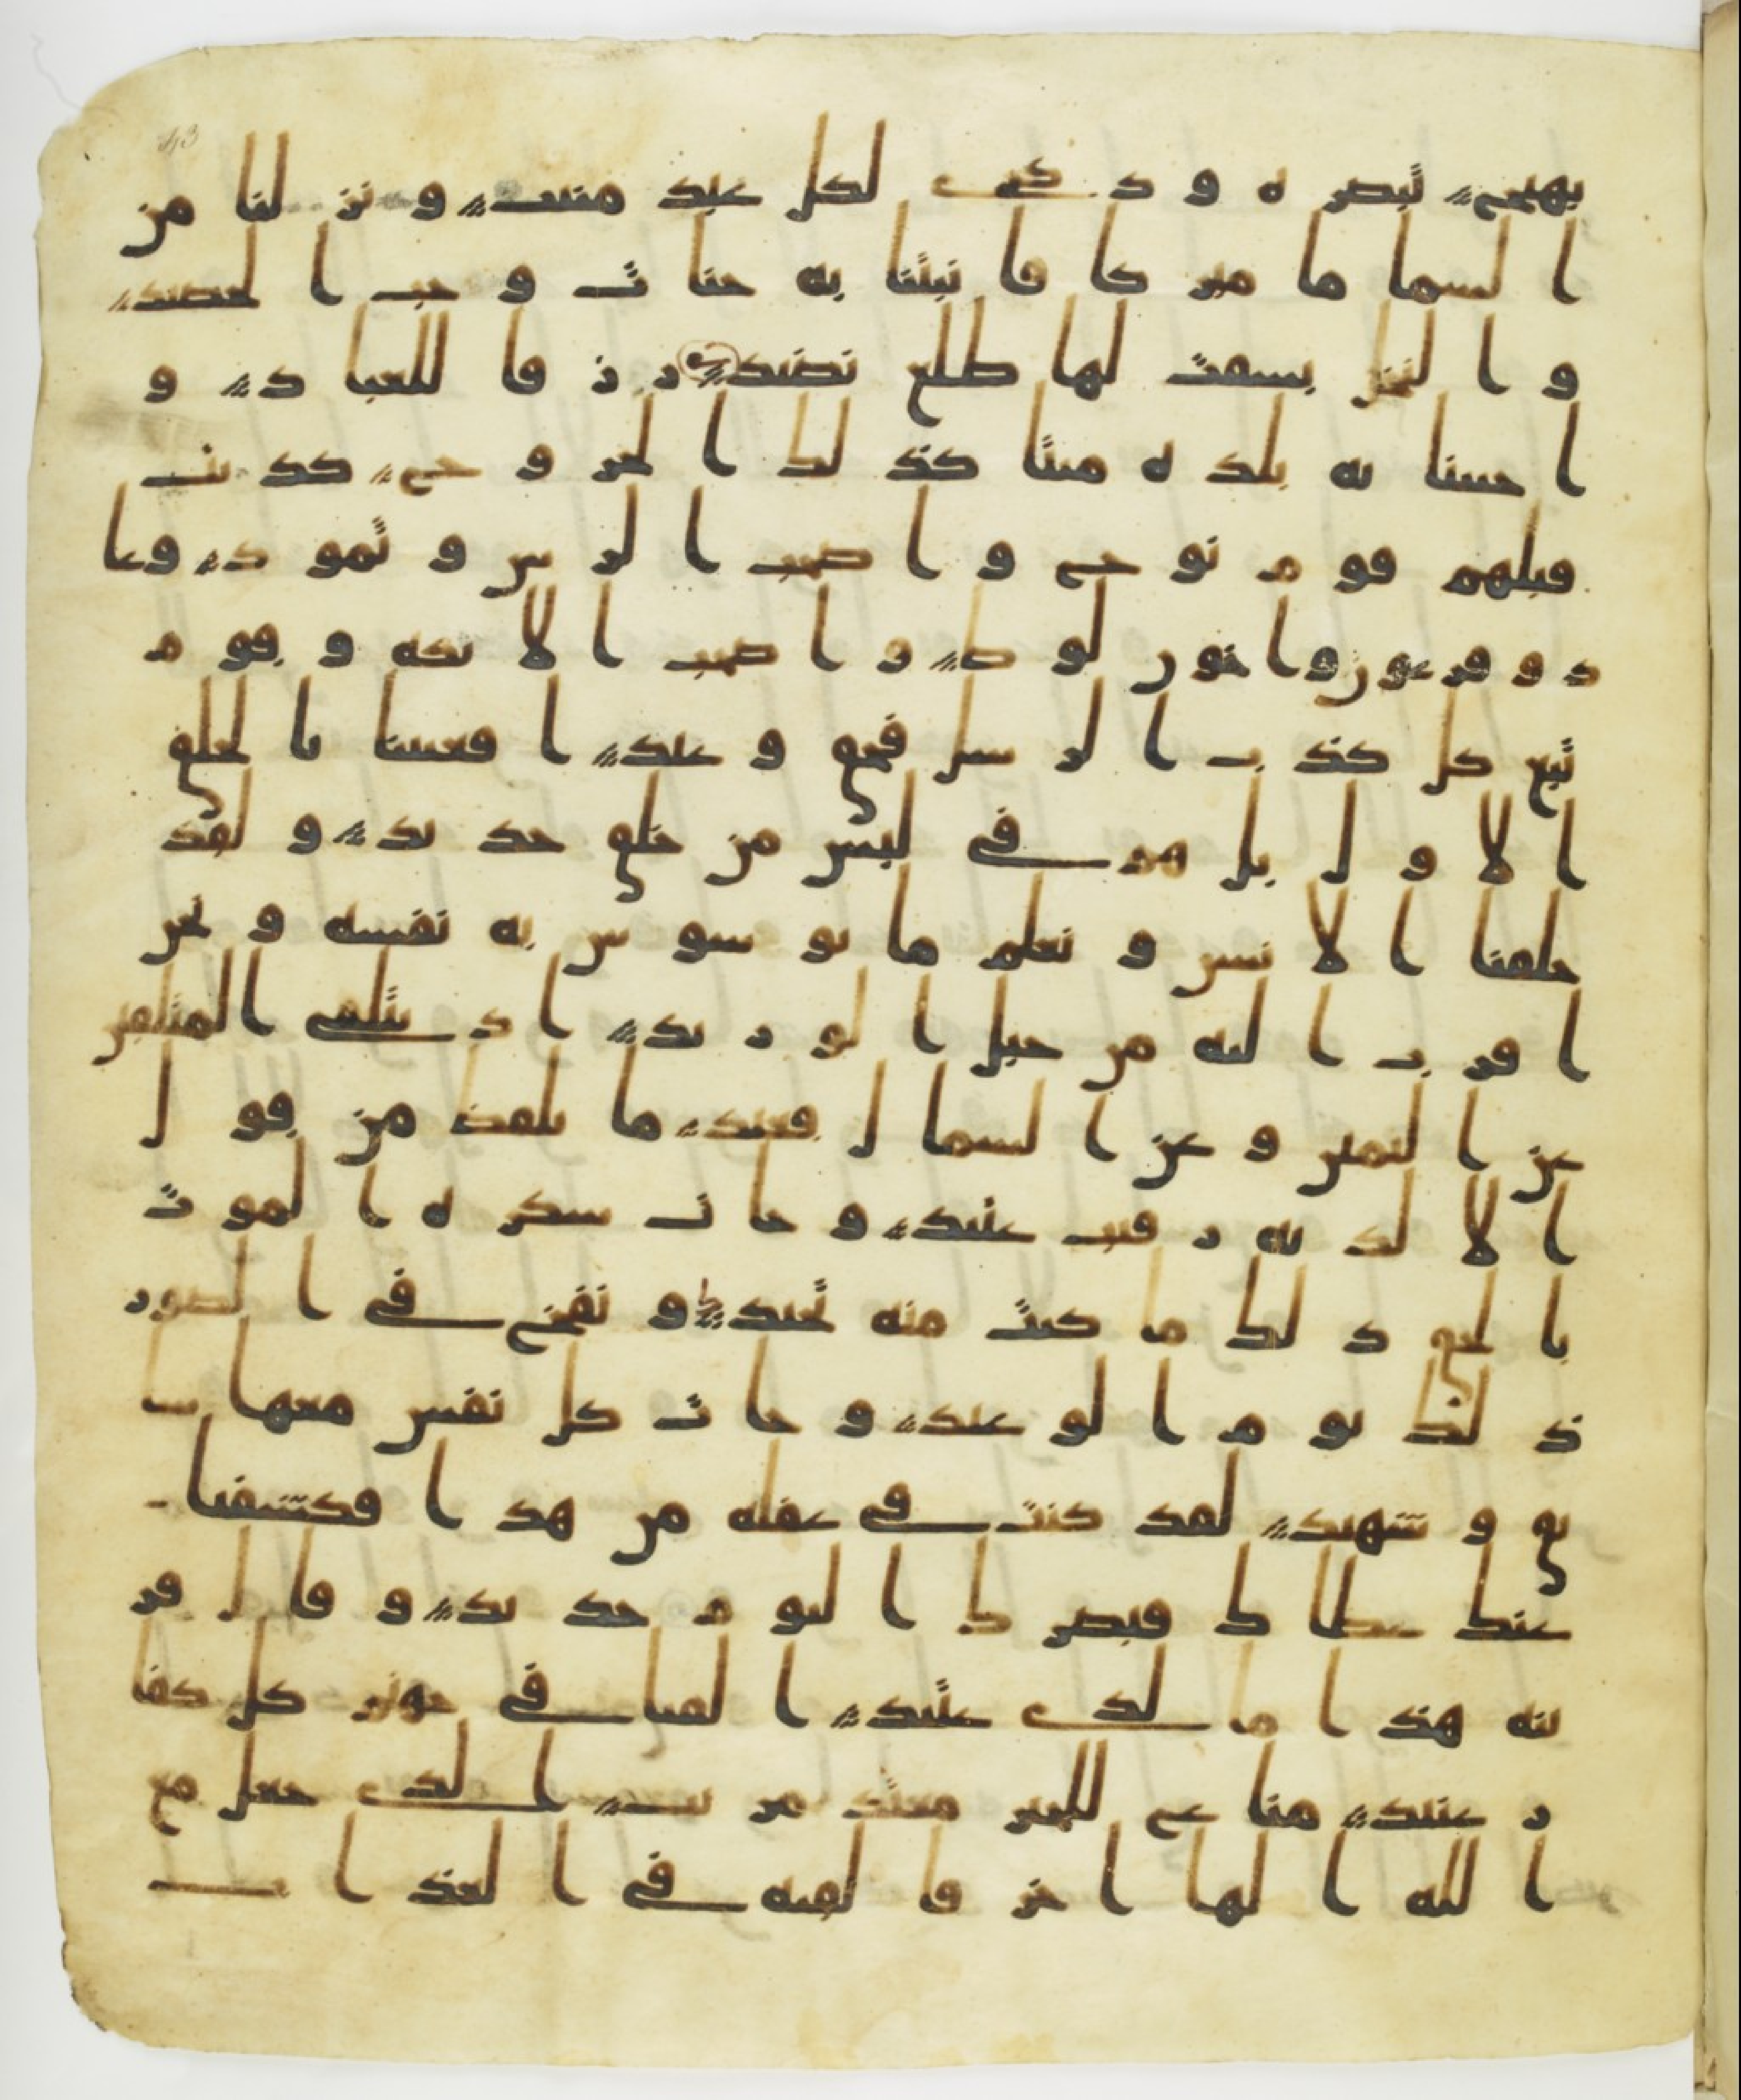 بهيج تبصره وذكرى لكل عبد منيب ونزلنا من
السما ما مبركا فانبتنا به جنات وحب الحصيد
والنخل بسقت لها طلع نضيد رزقا للعباد و
احيينا به بلده ميتا كذلك الخروج كذبت
قبلهم قوم نوح واصحب الرس وثمود وعا
د وفرعون واخون لوط واصحب الايكه وقوم
تبع كل كذب الرسل فحق وعيد افعيينا بالخلق
الاول بل هم في لبس من خلق جديد ولقد
خلقنا الانسن ونعلم ما توسوس به نفسه ونحن
اقرب اليه من حبل الوريد اذ يتلقى المتلقين
عن اليمين وعن السمال قعيد ما يلفظ من قول
الا لديه رقيب عتيد وجات سكره الموت
بالحق ذلك ما كنت منه تحيد ونفخ في الصور
ذلك يوم الوعيد وجات كل نفس معها سا
يق وشهيد لقد كنت في غفله من هذا فكشفنا
عنك غطاك فبصرك اليوم حديد وقال قر
ينه هذا ما لدي عتيد القيا في جهنم كل كفا
ر عنيد مناع للخير معتد مريب الذي جعل مع
الله الها اخر فالقيه في العذاب